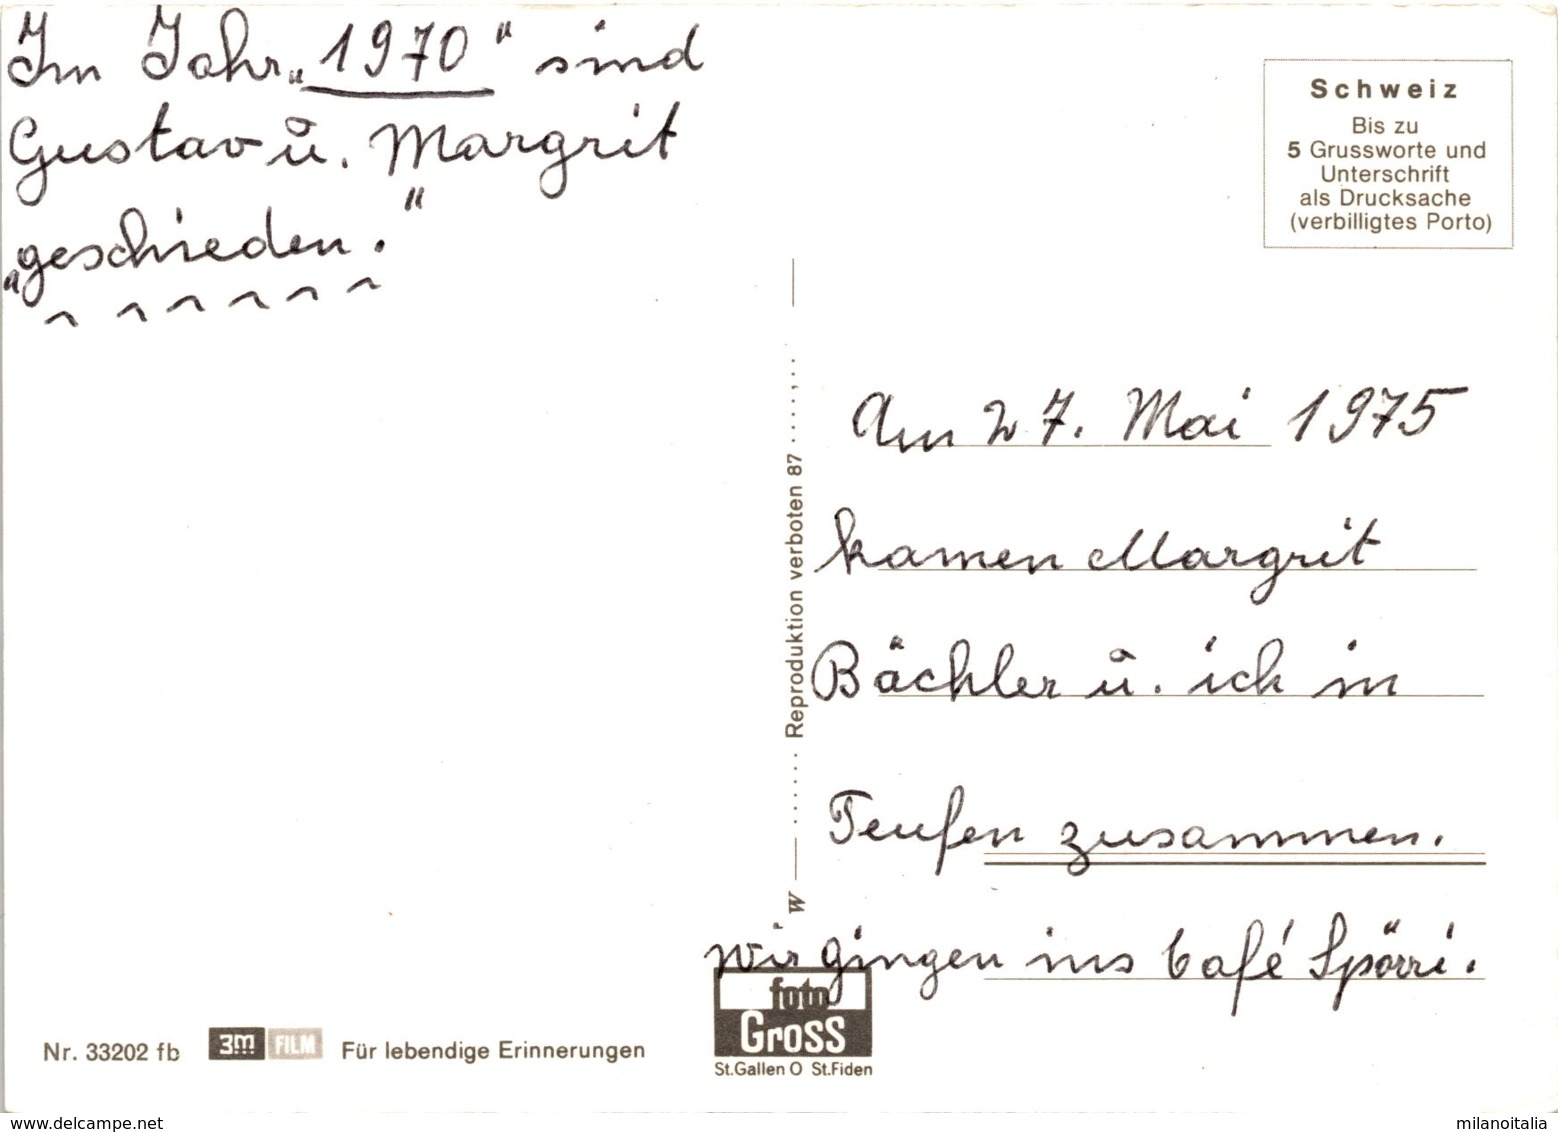 Im Jahr „1970“ sind
Gustav u. Margrit
„geschieden.“
Schweiz
Bis zu
5 Grussworte und
Unterschrift
als Drucksache
(verbilligtes Porto)
Am 27. Mai 1975
kamen Margrit
Bächler u. ich in
Teufen zusammen.
Wir gingen ins Café Spörri.
W Reproduktion verboten 87
Nr. 33202 fb
3m FILM
Für lebendige Erinnerungen
foto
Gross
St.Gallen O St.Fiden
delcampe.net
milanoitalia